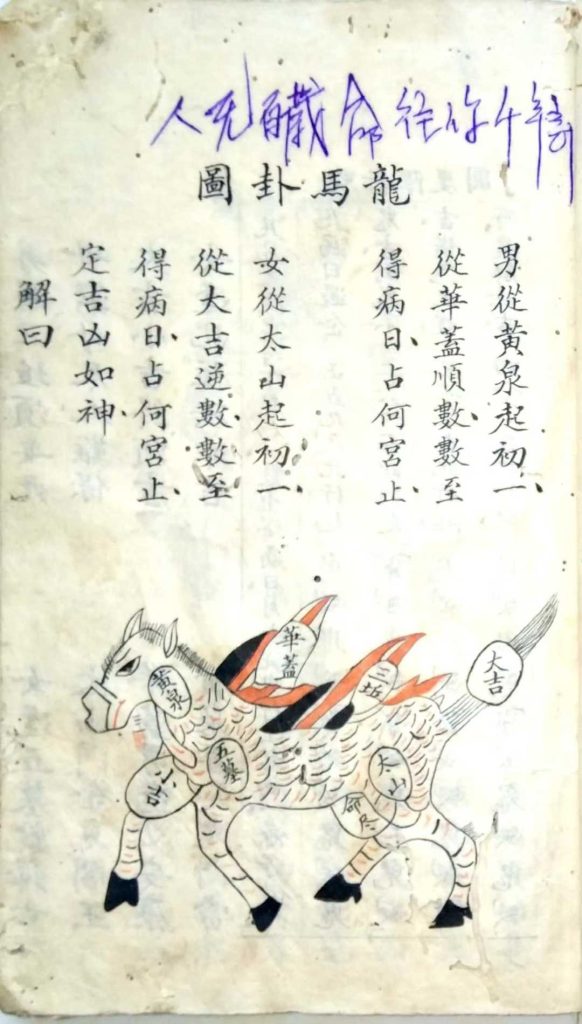 龍馬卦圖
男從黃泉起初一、
從華蓋順數、數至
得病日、占何宮止、
女從太山起初一、
從大吉逆數、數至
得病日、占何宮止、
定吉凶如神、
解曰
黃泉
華蓋
三坵
大吉
五墓
太山
小吉
命尽